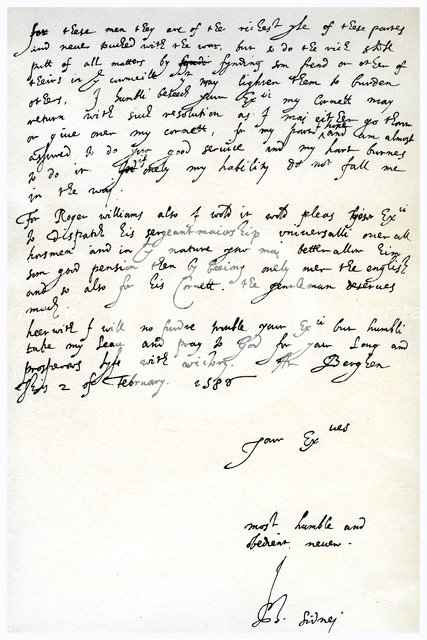 for these men they are of the richest yle of these partes
and never pucked with the war, but so do the rich still
putt of all matters by fynding som frend or other of
theirs in yᵉ counceille yᵗ may lighten them to burden
others, I humbli beseech your Exᶜⁱⁱ my Cornett may
return with such resolution as I mai either go thorow
or give over my cornett, for my part and am almost
assured to do your good service and my hart burnes
to do it only my hability do not fall me
in the way.
For Roger williams also I wold it wold pleas your Exᶜⁱⁱ
to dispatch his sergeant maiorship universalli over all
horsmen and in yᵗ nature your mai better allow him
som good pension then by beeing onely over the english
and so also for his Cornett, the gentleman deserves
much.
heerwith I will no furdre trouble your Exᶜⁱⁱ but humbli
take my leau and pray to God for your long and
prosperous lyfe with victory. At Berghen
this 2 of February. 1586
Your Exᶜⁱᵉˢ
most humble and
obedient neuew.
Ph. Sidnei